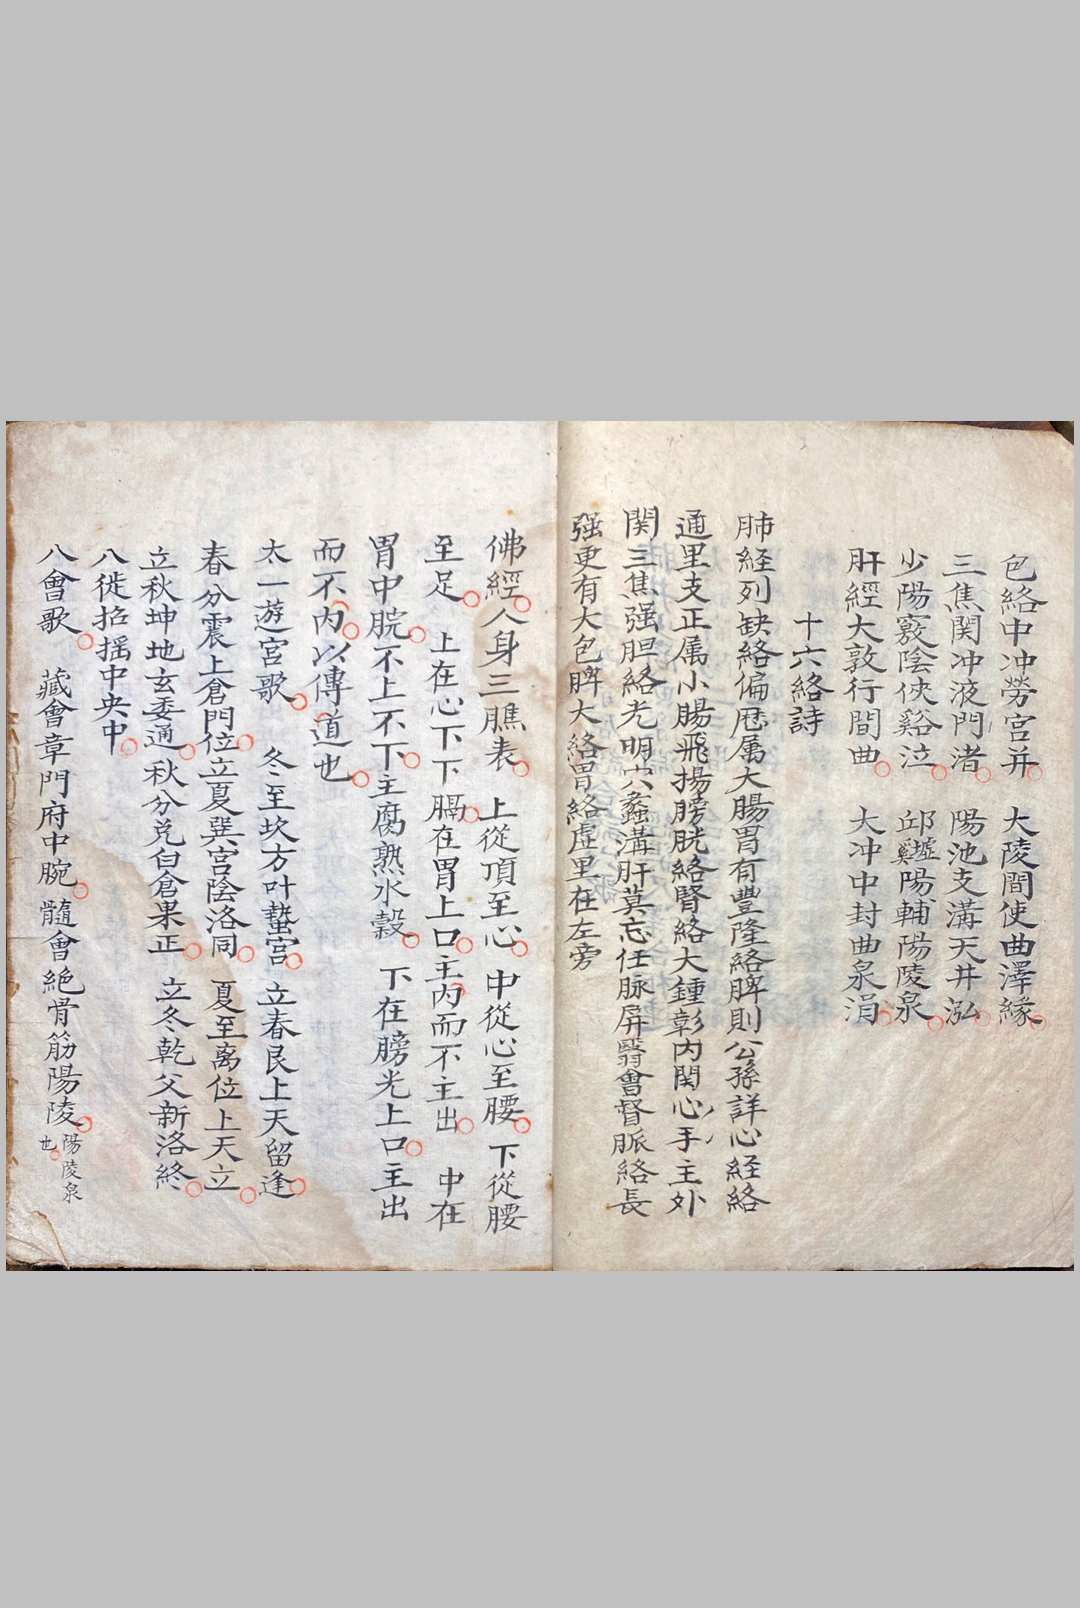 包絡中冲勞宫并　大陵間使曲澤縁
三焦関冲液門渚　陽池支溝天井泓
少陽竅陰俠谿泣　邱墟陽輔陽陵泉
肝經大敦行間曲　大冲中封曲泉涓
十六絡詩
肺経列缺絡偏厐属大腸胃有豐隆絡脾則公孫詳心経絡
通里支正属小腸飛揚膀胱絡腎絡大鍾彰内関心手主外
関三焦强胆絡光明穴蠡溝肝莫忘任脉屏翳會督脈絡長
强更有大包脾大絡胃絡虚里在左旁
佛經人身三膲表　上從頂至心　中從心至腰　下從腰
至足　上在心下下膈在胃上口主内而不主出　中在
胃中脘不上不下主腐熟水穀　下在膀光上口主出
而不内以傳道也
太一遊宮歌　冬至坎方叶蟄宮　立春艮上天留逢
春分震上倉門位立夏巽宮陰洛同　夏至离位上天立
立秋坤地玄委通　秋分兑白倉果正　立冬乾父新洛終
八徙招摇中央中
八會歌　藏會章門府中腕　髓會絶骨筋陽陵陽陵泉也